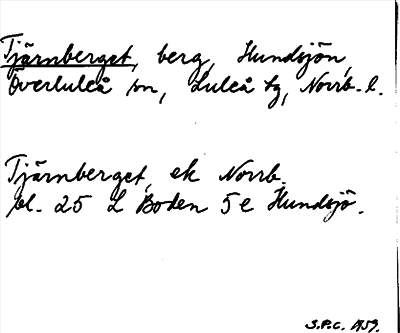 Tjärnberget, berg, Hundsjön,
Överluleå sn, Luleå tg, Norrb. l.
Tjärnberget, ek Norrb.
bl. 25 L Boden 5 e Hundsjö.
S.P.C. 1959.